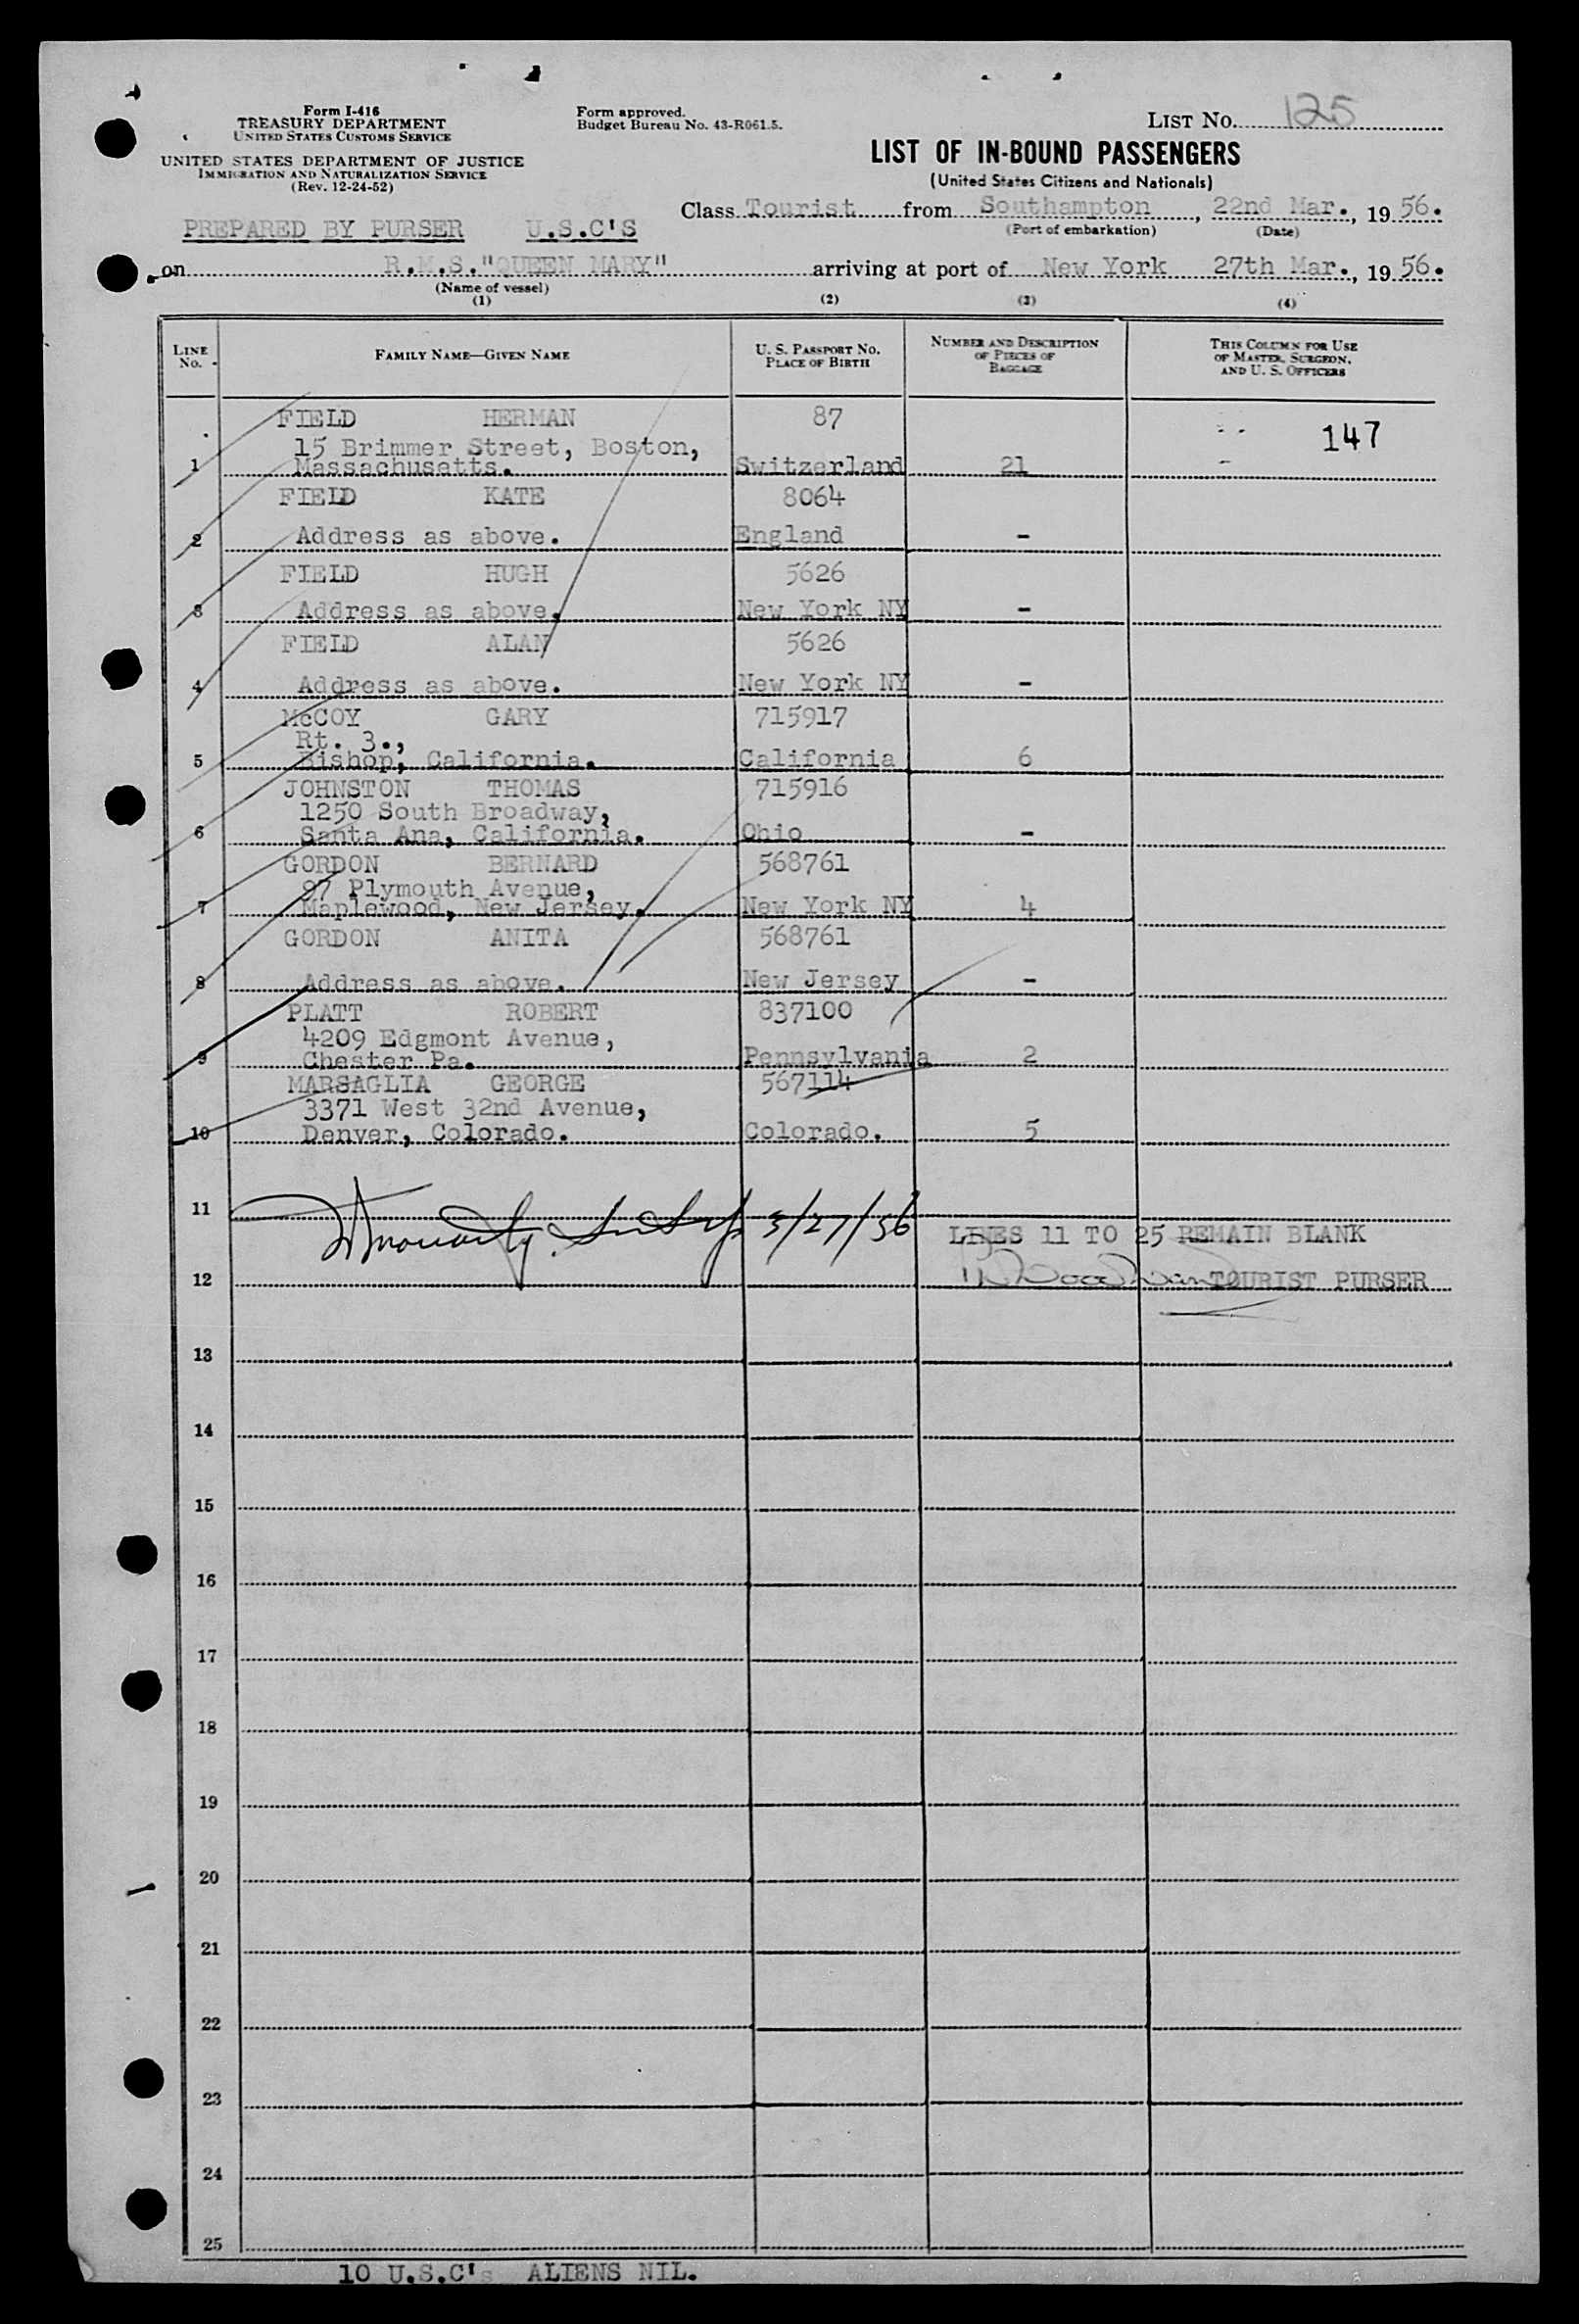 Form I-416
TREASURY DEPARTMENT
UNITED STATES CUSTOMS SERVICE
UNITED STATES DEPARTMENT OF JUSTICE
IMMIGRATION AND NATURALIZATION SERVICE
(Rev. 12-24-52)
Form approved.
Budget Bureau No. 43-R061.5.
LIST No. 125
LIST OF IN-BOUND PASSENGERS
(United States Citizens and Nationals)
PREPARED BY PURSER U.S.C'S
Class Tourist from Southampton, 22nd Mar., 19 56.
(Port of embarkation) (Date)
on R.M.S."QUEEN MARY" arriving at port of New York 27th Mar., 19 56.
(Name of vessel)
(1) (2) (3) (4)
LINE No. FAMILY NAME—GIVEN NAME U. S. PASSPORT No. PLACE OF BIRTH NUMBER AND DESCRIPTION OF PIECES OF BAGGAGE THIS COLUMN FOR USE OF MASTER, SURGEON, AND U. S. OFFICERS
FIELD HERMAN 87
147
15 Brimmer Street, Boston,
1 Massachusetts. Switzerland 21
FIELD KATE 8064
2 Address as above. England -
FIELD HUGH 5626
3 Address as above. New York NY -
FIELD ALAN 5626
4 Address as above. New York NY -
McCOY GARY 715917
Rt. 3.,
5 Bishop, California. California 6
JOHNSTON THOMAS 715916
1250 South Broadway,
6 Santa Ana, California. Ohio -
GORDON BERNARD 568761
97 Plymouth Avenue,
7 Maplewood, New Jersey. New York NY 4
GORDON ANITA 568761
8 Address as above. New Jersey -
PLATT ROBERT 837100
4209 Edgmont Avenue,
9 Chester Pa. Pennsylvania 2
MARSAGLIA GEORGE 567114
3371 West 32nd Avenue,
10 Denver, Colorado. Colorado. 5
11
3/27/56
LINES 11 TO 25 REMAIN BLANK
12 TOURIST PURSER
13
14
15
16
17
18
19
20
21
22
23
24
25
10 U.S.C's ALIENS NIL.